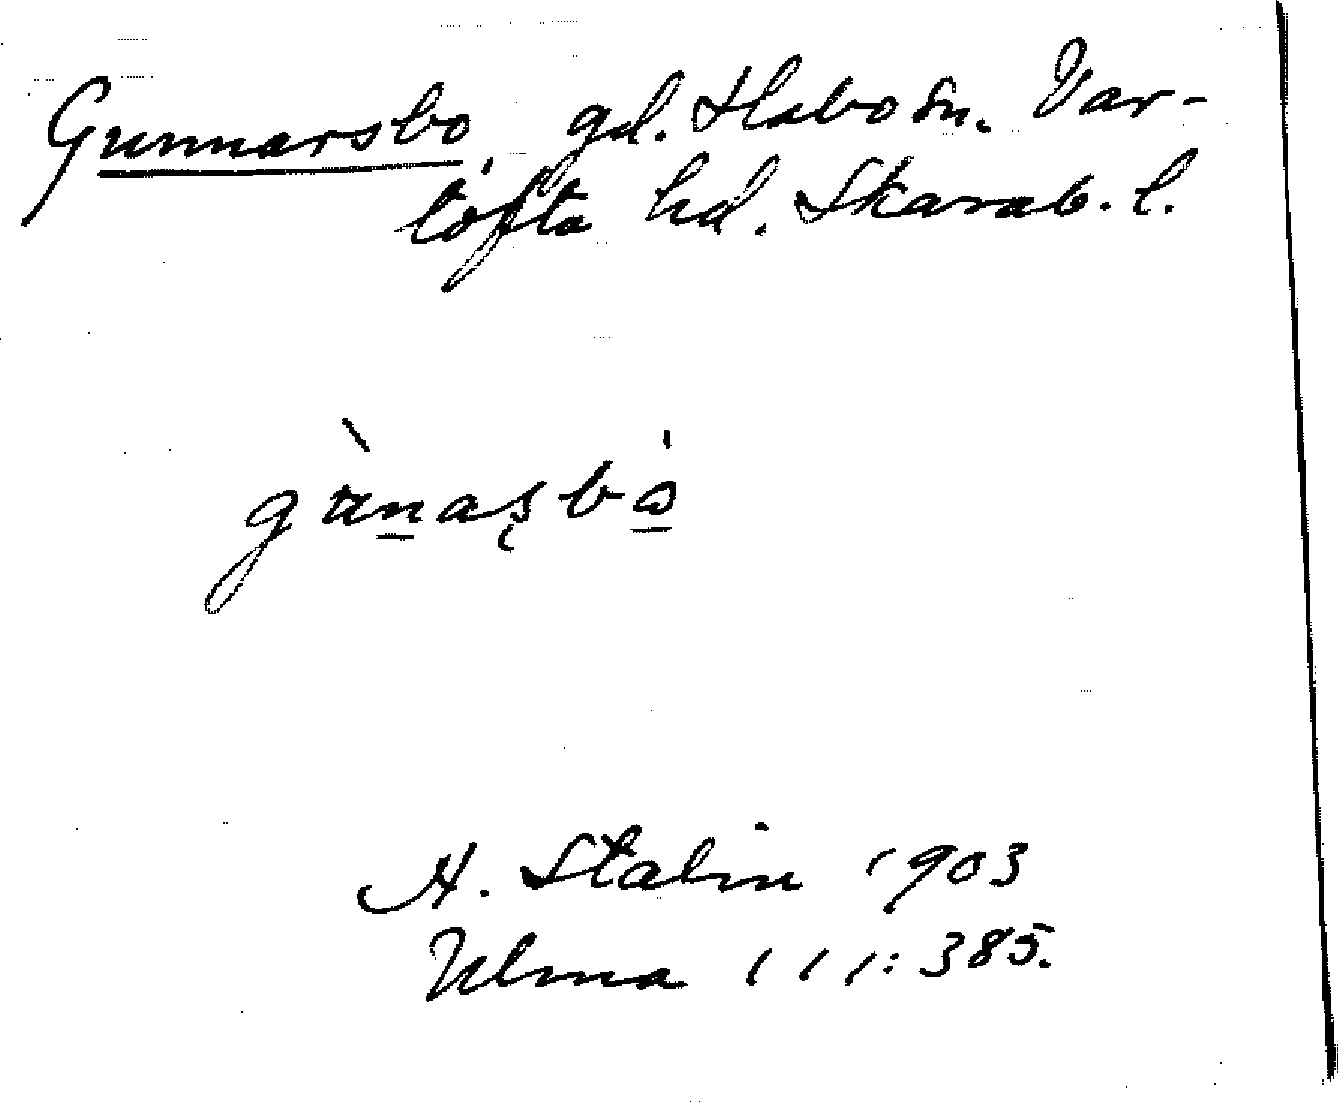 Gunnarsbo, gd. Habo sn. Var-
tofta hd. Skarab. l.
gu̇̀nasbo
A. Stalin 1903
Ulma 111:385.